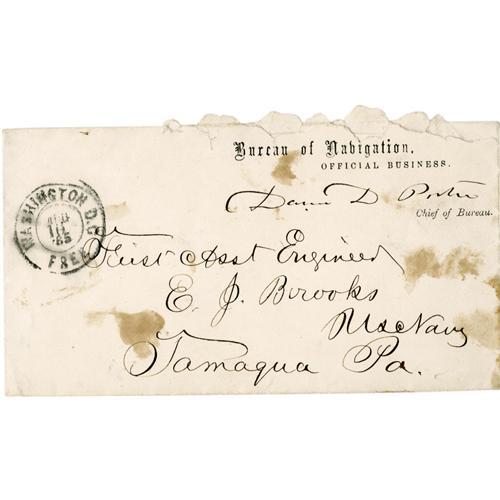 Bureau of Navigation,
OFFICIAL BUSINESS.
David D Porter
Chief of Bureau.
WASHINGTON D.C.
'65
FREE
First Asst Engineer
E. J. Brooks
U.S. Navy
Tamaqua Pa.